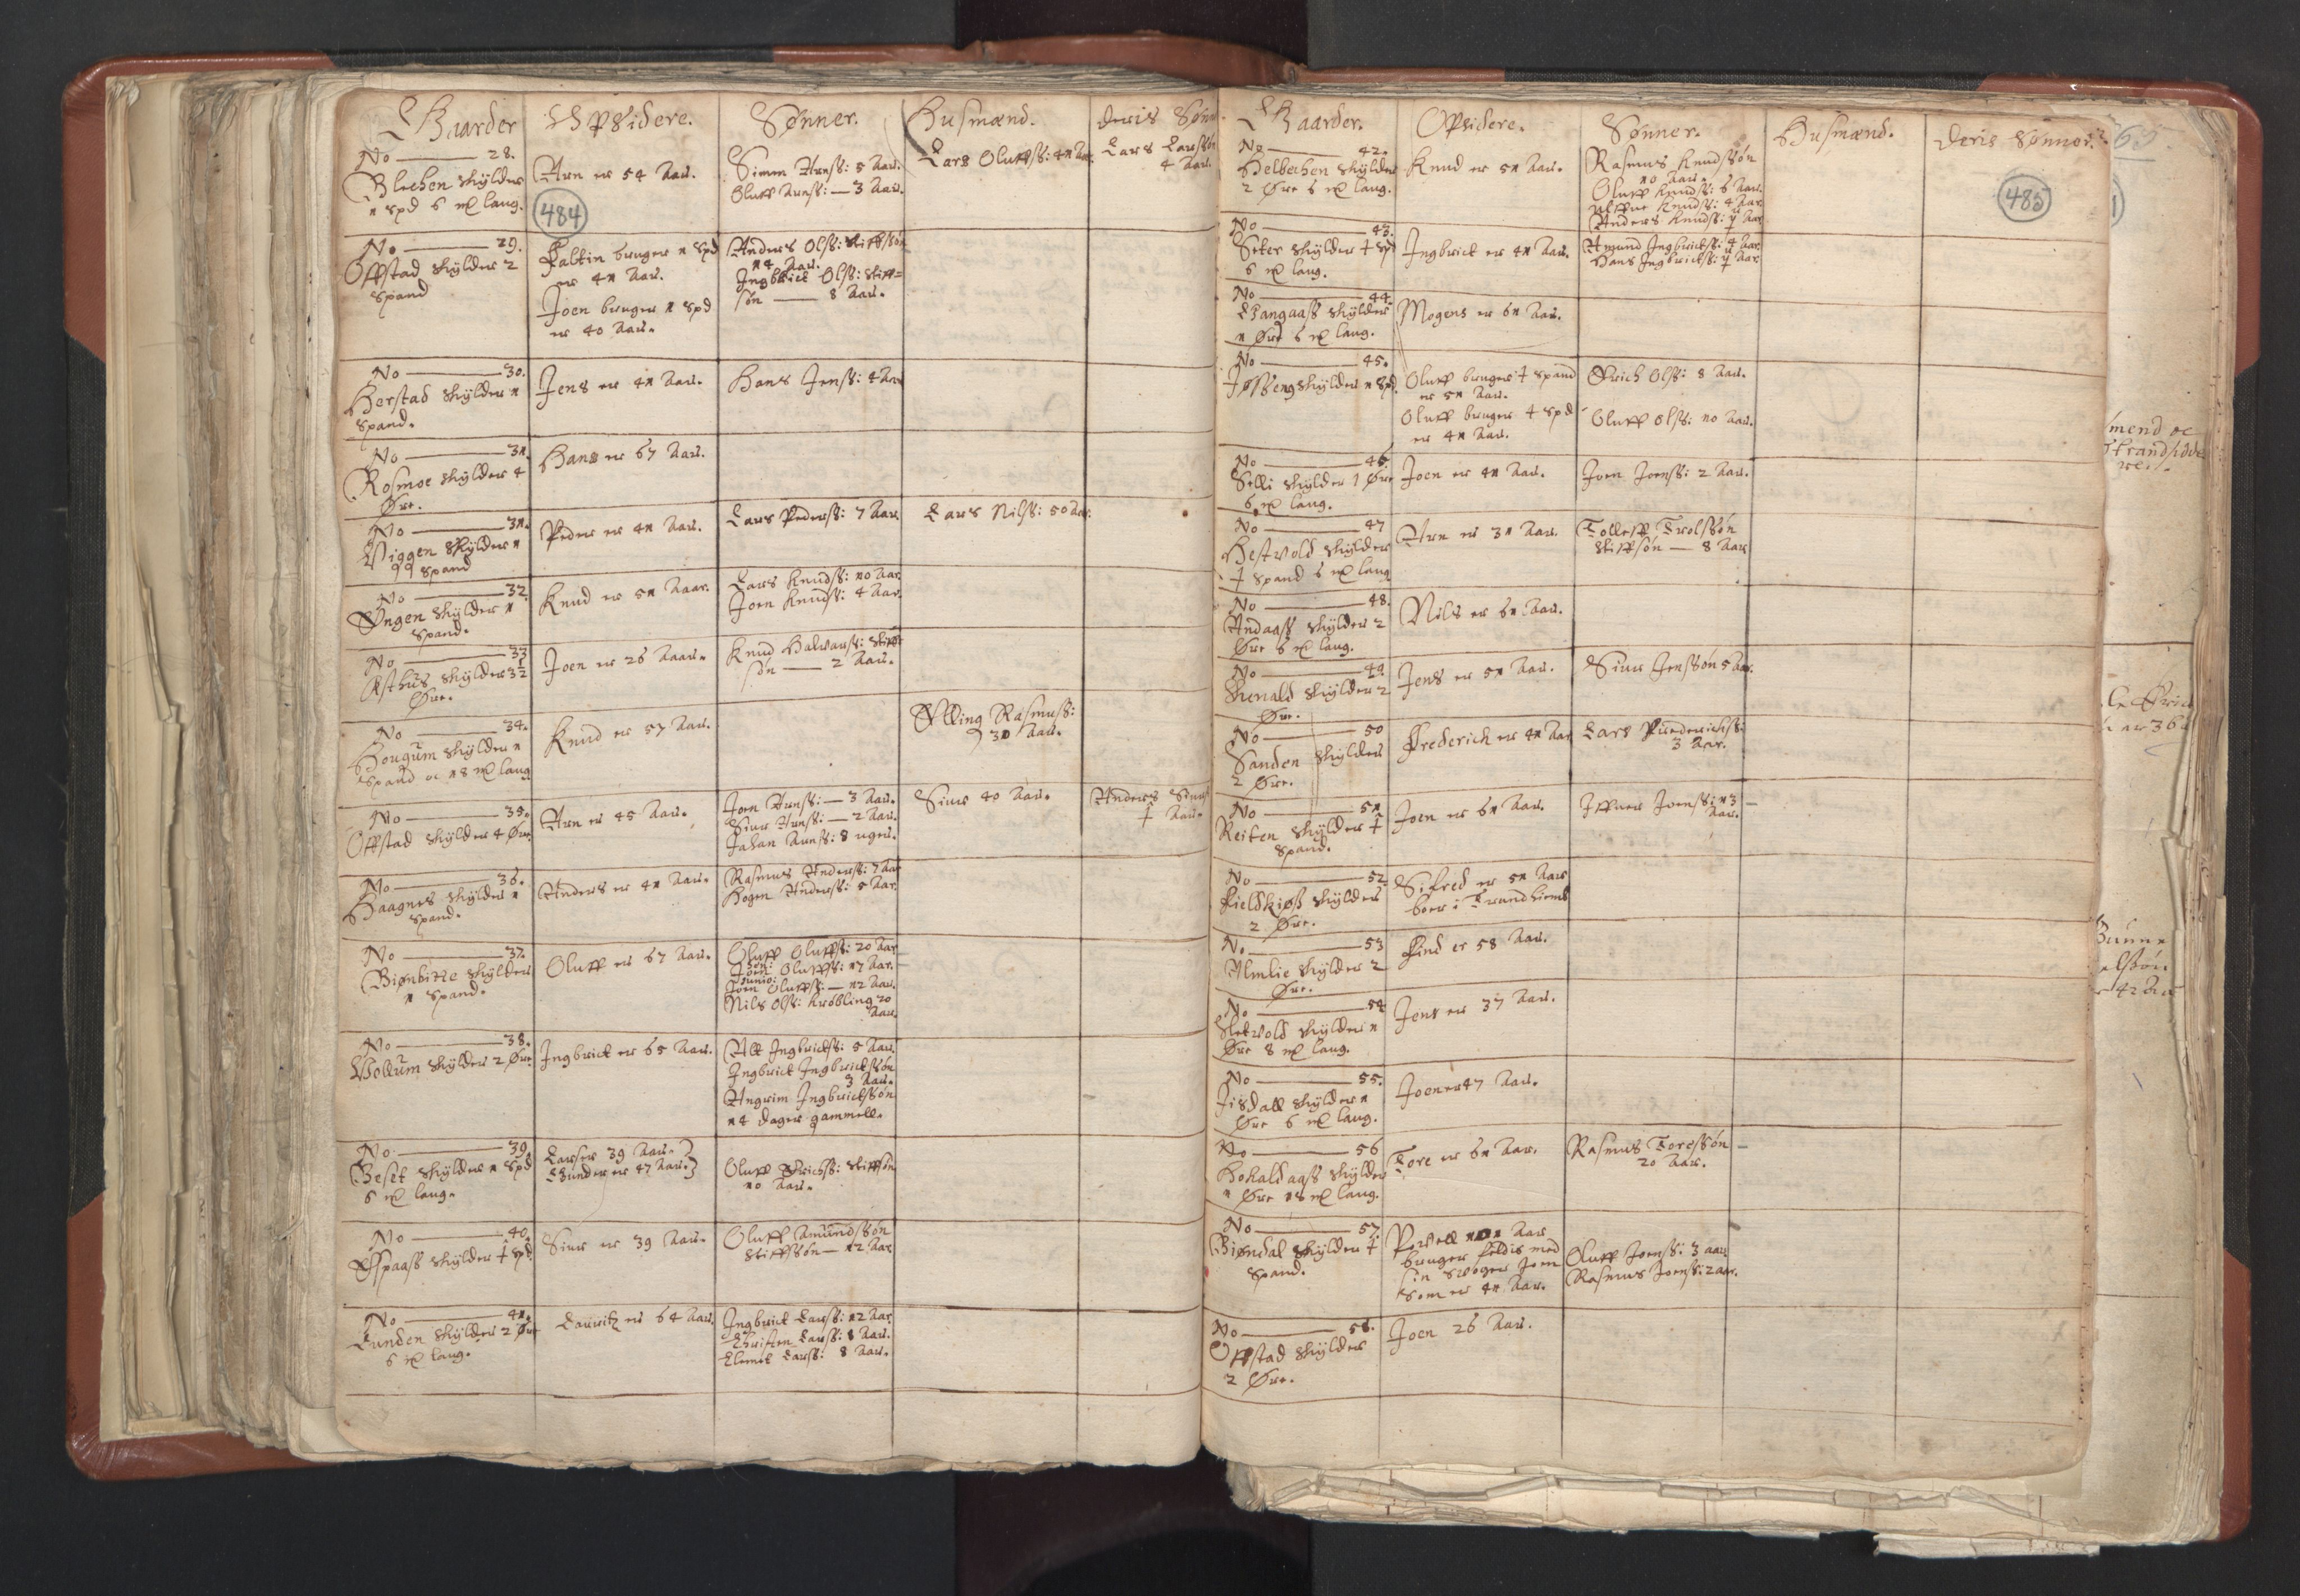 Gaarder Opsidere. Sønner. Husmænd. deris Sønn
No 28.
Blechen skylder
1 spd 6 mk laug.
Arn er 54 Aar.
484
Simen Arnss: 5 Aar.
Oluff Arnss: — 3 Aar.
Lars Oluffss: 41 Aar.
Lars Larssøn
4 Aar.
No 29.
Offstad skylder 2
spand
Faltin bruger 1 spd
er 41 Aar.
Joen bruger 1 spd
er 40 Aar.
Anders Olss: stiffsøn
14 Aar.
Ingbrict Olss: stiff=
søn — 8 Aar.
No 30.
Herstad skylder 1
spand.
Jens er 41 Aar.
Hans Jenss: 4 Aar
No 31.
Rosmoe skylder 4
Øre.
Hans er 67 Aar.
No 31.
Viggen skylder 1
spand
Peder er 41 Aar.
Lars Pederss: 7 Aar
Lars Nilss: 50 Aar.
No 32.
Øngen skylder 1
spand.
Knud er 51 Aaar.
Lars Knudss: 10 Aar.
Joen Knudss: 4 Aar.
No 33
Østhus skylder 3½
Øre.
Joen er 26 Aaar.
Knud Halvarss: stif
søn — 2 Aar.
No 34.
Hougum skylder 1
spand oc 18 mk laug
Knud er 57 Aar.
Elling Rasmuss:
30 Aar.
No 35.
Offstad skylder 4 Øre
Arn er 45 Aar.
Joen Arnss: — 3 Aar.
Siur Arnss: — 2 Aar.
Johan Arnss: 8 uger.
Siur 40 Aar.
Anders Siurs
Aar.
No 36.
Haagnes skylder 1
spand.
Anders er 41 Aar.
Rasmus Anderss: 7 Aar
Hogen Anderss: 5 Aar.
No 37.
Biønbitte skylder
1 spand.
Oluff er 67 Aar.
Oluff Oluffss: 20 Aar
Joen Oluffss: 17 Aar.
Junior
Joen Oluffss: — 12 Aar.
Nils Olss: Krøbling 20
Aar.
No 38.
Vollum skylder 2 Øre
Ingbrict er 65 Aar.
Alt Ingbrictss: 5 Aar.
Ingbrict Ingbrictssøn
3 Aar.
Angrim Ingbrictssøn
14 dager gammell.
No 39
Beset skylder 1 spd
6 mk laug.
Lars er 39 Aar.
Gunder er 47 Aar.
Oluff Erichss: stiffsøn
10 Aar.
No 40.
Espaass skylder ½ spd.
Siur er 39 Aar.
Oluff Amundssøn
stiffsøn — 12 Aar
No 41.
Lunden skylder 2 Øre
6 mk laug.
Lauritz er 64 Aar.
Ingbrict Larss: 12 Aar
Christen Larss: 8 Aar.
Clemit Larss: 8 Aar.
Gaarder. Opsidere. Sønner. Husmænd. deris Sønner.
485
No 42.
Helbechen skylder
2 Øre 6 mk laug.
Knud er 51 Aar.
Rasmus Knudssøn
10 Aar.
Oluff Knudss: 6 Aar.
Knudss: 4 Aar
Anders Knudss: Aar
No 43.
Seter skylder ½ spd
6 mk laug.
Ingbrict er 41 Aar.
Amund Ingbrictss: 4 Aar
Hans Ingbrictss: Aar.
No 44.
Gangaass skylder
1 Øre 6 mk laug.
Mogens er 61 Aar.
No 45.
Jøsseng skylder 1 spd.
Oluff bruger ½ spand
er 51 Aar.
Oluff bruger ½ spd
er 41 Aar.
Erich Olss: 8 Aar.
Oluff Olss: 10 Aar.
No 46.
Selli skylder 1 Øre
6 mk laug.
Joen er 41 Aar.
Joen Joenss: 2 Aar.
No 47
Hestvold skylder
½ spand 6 mk laug
Arn er 31 Aar.
Tolleff Trolssøn
stiffsøn — 8 Aar
No 48.
Andaass skylder 2
Øre 6 mk laug.
Nils er 61 Aar.
No 49.
skylder 2
Øre.
Jens er 51 Aar.
Siur Jenssøn 5 Aar.
No 50
Sanden skylder
2 Øre.
Frederich er 41 Aar
Lars Frederichss:
3 Aar.
No 51
Reiten skylder ½
spand.
Joen er 61 Aar.
Iffuer Joenss: 13
Aar.
No 52
Fieldkiøss skylder
2 Øre.
Sifred er 51 Aar
boer i Trundhiemb
No 53
Almlie skylder 2
Øre.
Find er 58 Aar.
No 54
Sletvold skylder 1
Øre 8 mk laug.
Jens er 37 Aar.
No 55.
Jisdall skylder 1
Øre 6 mk laug.
Joen er 47 Aar.
No 56
Hokaldaass skylder
1 Øre 18 mk laug.
Tore er 61 Aar.
Rasmus Toressøn
20 Aar.
No 57.
Biøndal skylder ½
spand.
Povell 101 Aar
bruger feldis med
sin svoger Joen
som er 41 Aar.
Oluff Joenss: 3 aar
Rasmus Joenss: 2 aar.
No 58.
Offstad skylder
2 Øre.
Joen 26 Aar.
mend oc
Strandsidde
re.